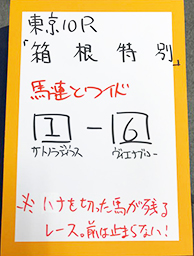 東京10R
「箱根特別」
馬連とワイド
1 - 6
サトノラディウス ヴィエナブロー
※ハナを切った馬が残る
レース。前は止まらない!